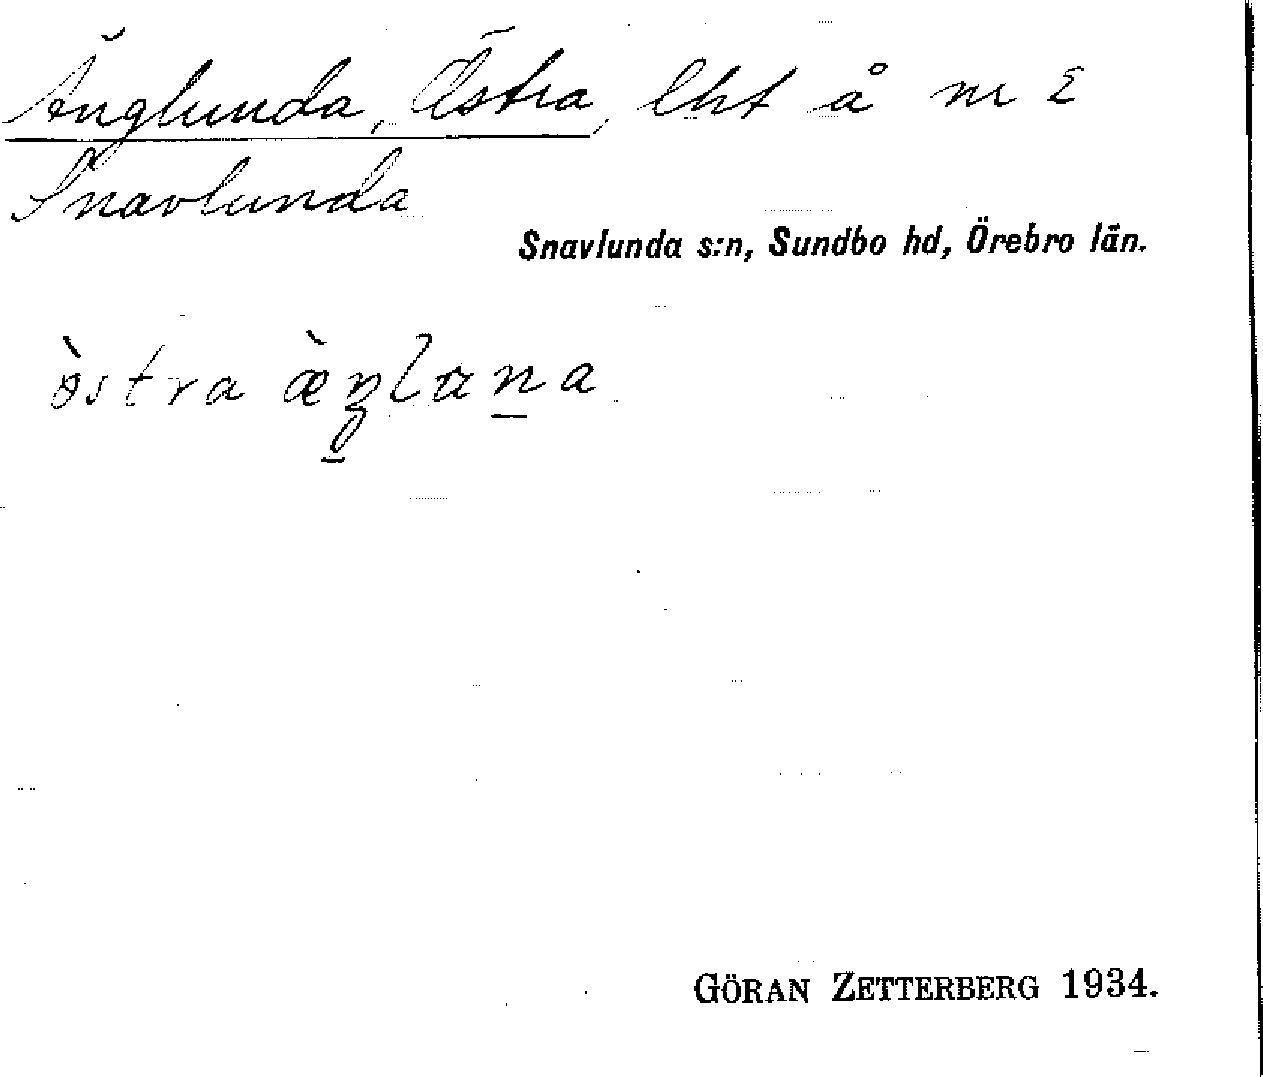 Änglunda, Östra, lht å nr 2
Snavlunda
Snavlunda s:n, Sundbo hd, Örebro län.
östra
GÖRAN ZETTERBERG 1934.